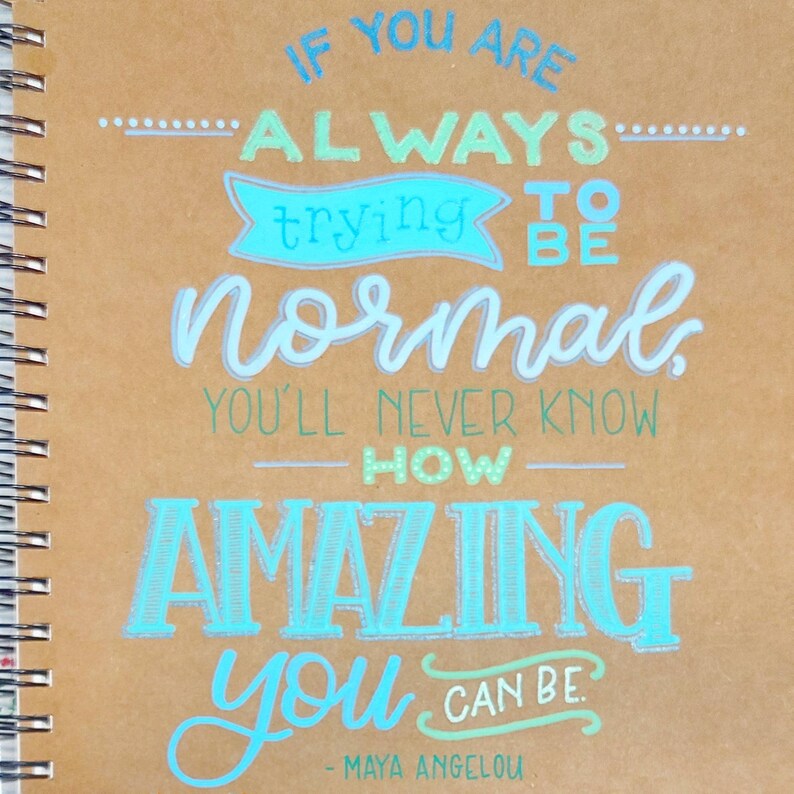 IF YOU ARE
ALWAYS
trying TO BE
normal,
YOU'LL NEVER KNOW
HOW
AMAZING
you CAN BE.
- MAYA ANGELOU